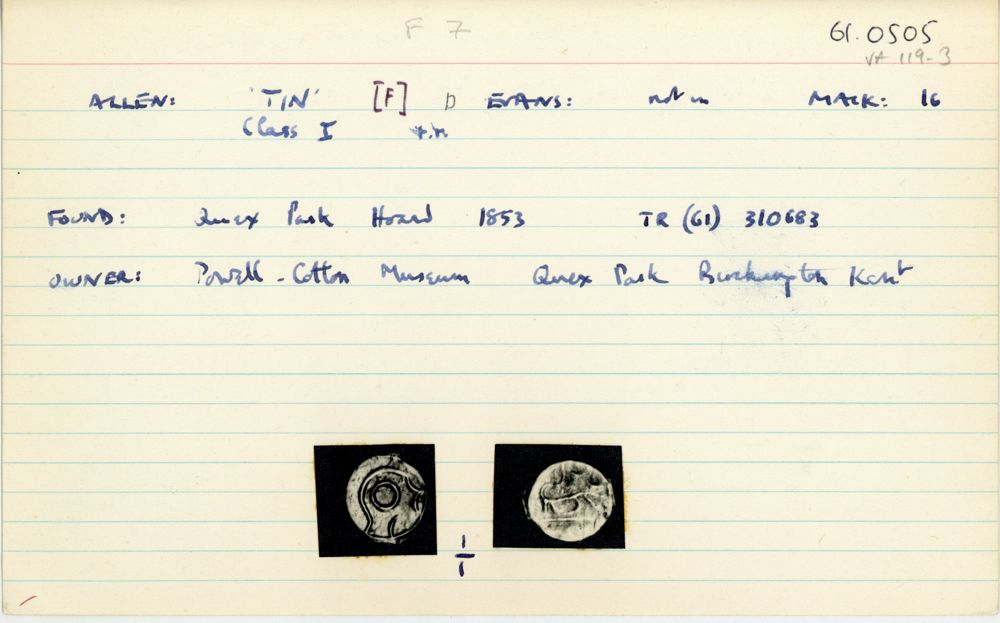 F 7 61.0505
VA 119-3
ALLEN: 'TIN' [F] D EVANS: not in MACK: 16
Class I
FOUND: Quex Park Hoard 1853 TR (61) 310683
OWNER: Powell-Cotton Museum Quex Park Birchington Kent
1/1